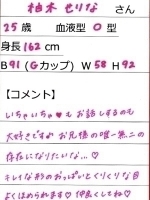 柚木 せりな さん
25歳 血液型 O型
身長 162 cm
B91 (Gカップ) W58 H92
【コメント】
いちゃいちゃ♥もお話しするのも
大好きです♪お兄様の唯一無二の
存在になりたいな…♡
キレイな形のおっぱいとくりくりな目
よくほめられます♡仲良くしてね♡